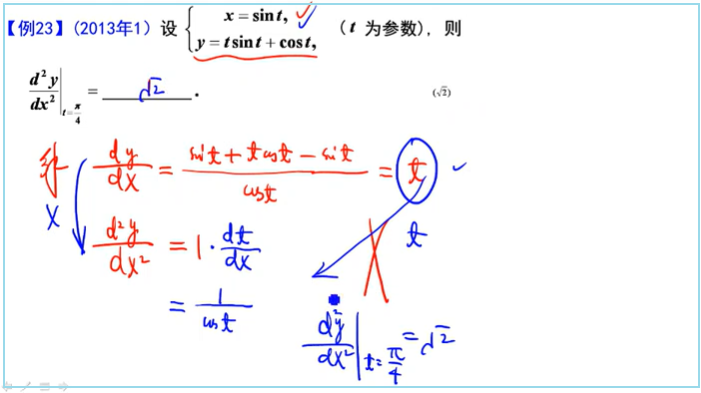 【例23】(2013年1) 设 { x = sin t, y = t sin t + cos t, （t 为参数），则
d²y/dx² |_{t=π/4} = √2 .
(√2)
解 dy/dx = (sin t + t cos t − sin t)/cos t = t
x d²y/dx² = 1 · dt/dx t
= 1/cos t
d²y/dx² |_{t=π/4} = √2